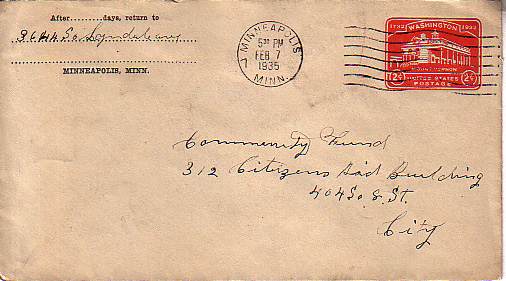 After..........days, return to
3644 So Lyndale ave
MINNEAPOLIS, MINN.
MINNEAPOLIS
7
5 30 PM
FEB 7
1935
MINN.
1732 WASHINGTON 1932
MOUNT VERNON
2¢ 2¢
UNITED STATES
POSTAGE
Community Fund
312 Citizens Aid Building
404 So. 8. St.
City